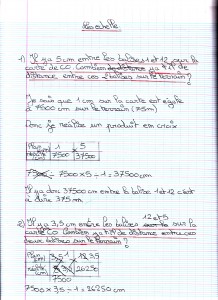 L'échelle
1) Il y a 5 cm entre les balises 1 et 12 sur la
carte de CO. Combien y a t'il de
distance entre ces 2 balises sur le terrain ?
Je sais que 1 cm sur la carte est égale
à 7500 cm sur le terrain (75m)
Donc je réalise un produit en croix
1 5
réalité 7500 37500
7500 × 5 ÷ 1 = 37500 cm
Il y a donc 37500 cm entre la balise 1 et 12 c'est
à dire 375 m.
12 et 5
2) Il y a 3,5 cm entre les balises sur la
carte CO combien y a t'il de distance entre ces
deux balises sur le terrain ?
1 3,5
réalité 26250
7500
7500 × 3,5 ÷ 1 = 26250 cm